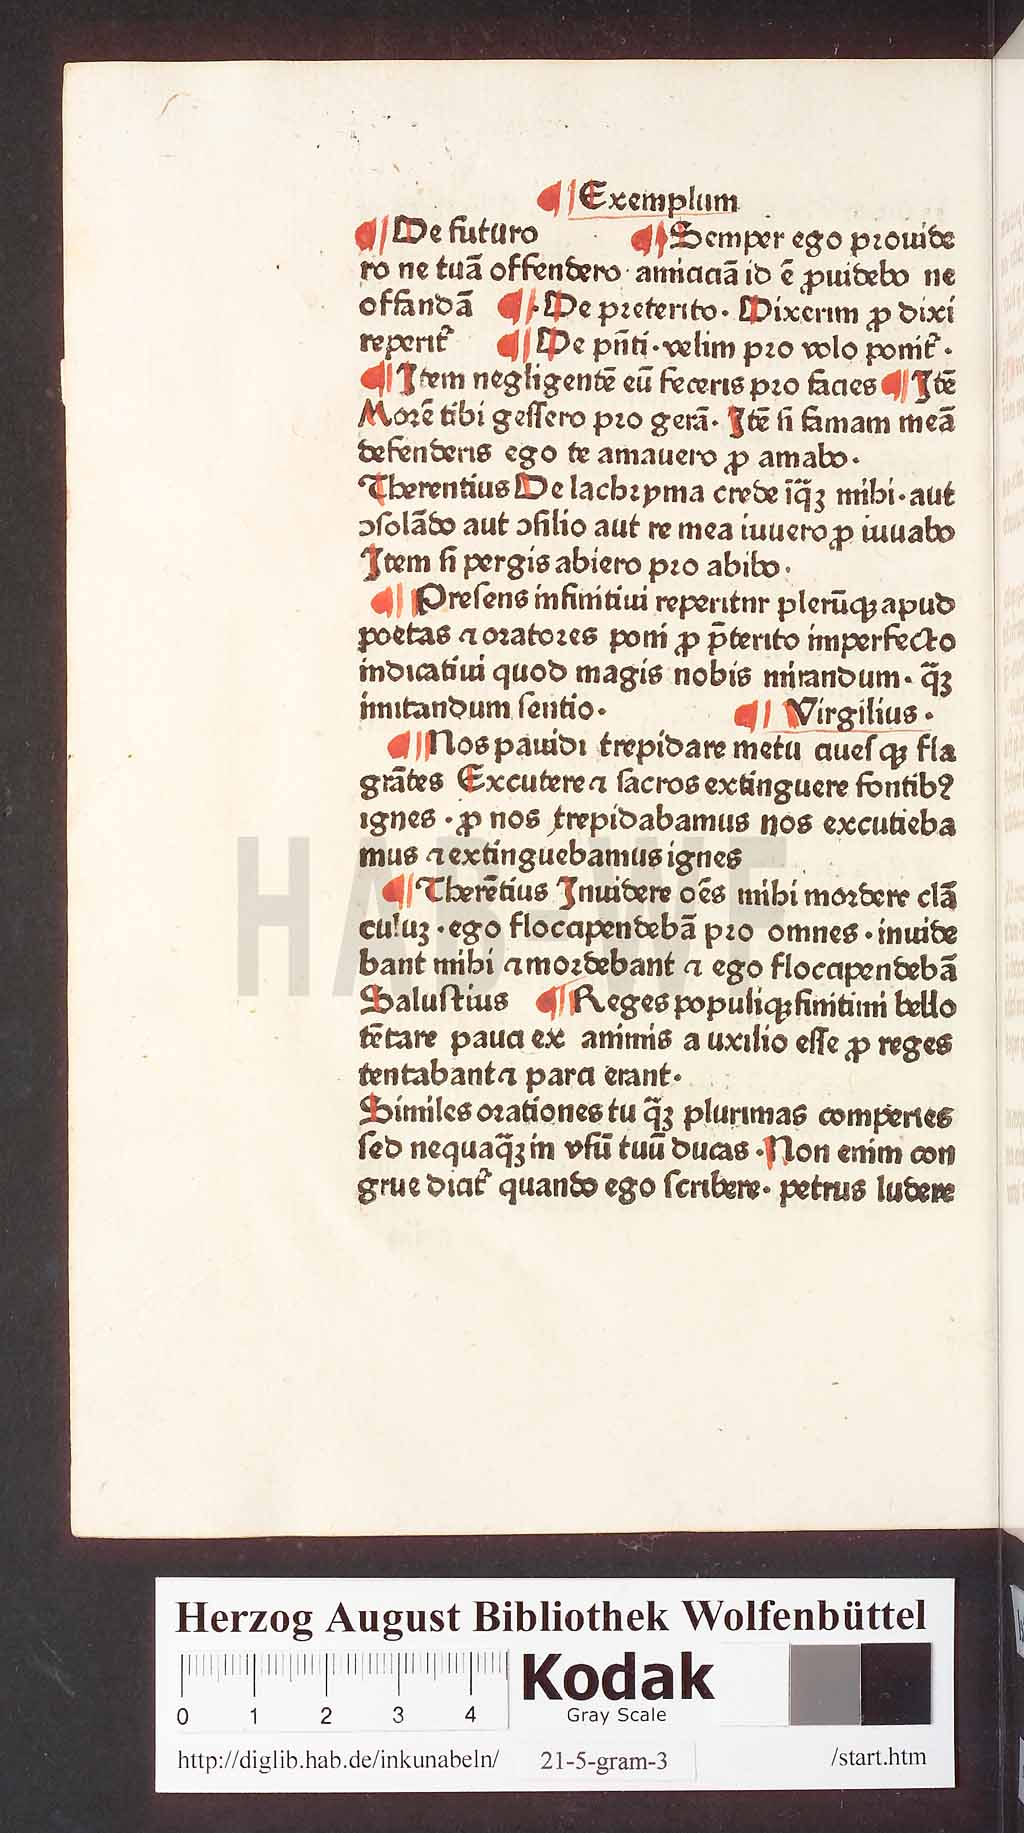 ¶ Exemplum
¶ De futuro ¶ Semper ego prouide
ro ne tuā offendero amiciciā id ē ꝓuidebo ne
offandā ¶ De preterito. Dixerim ꝓ dixi
reperit᷑ ¶ De pn̄ti. velim pro volo ponit᷑.
¶ Item negligentē eū feceris pro facies ¶ Itē
Morē tibi gessero pro gerā. Itē si famam meā
defenderis ego te amauero ꝓ amabo.
Therentius De lachryma crede īq̄ꝫ mihi. aut
ꝯsolādo aut ꝯsilio aut re mea iuuero ꝓ iuuabo
Item si pergis abiero pro abibo.
¶ Presens infinitiui reperitnr plerūqꝫ apud
poetas ⁊ oratores poni ꝓ p̄terito imperfecto
indicatiui quod magis nobis mirandum. q̄ꝫ
imitandum sentio. ¶ Virgilius.
¶ Nos pauidi trepidare metu cuesqꝫ fla
grātes Excutere ⁊ sacros extinguere fontibꝰ
ignes. ꝓ nos trepidabamus nos excutieba
mus ⁊ extinguebamus ignes
¶ Therētius Inuidere oēs mihi mordere clā
culuꝫ. ego floccipendebā pro omnes. inuide
bant mihi ⁊ mordebant ⁊ ego floccipendebā
Salustius ¶ Reges populiqꝫ finitimi bello
tētare pauci ex amimis a uxilio esse ꝓ reges
tentabant ⁊ parci erant.
Similes orationes tu q̄ꝫ plurimas comperies
sed nequaq̄ꝫ in vsū tuū ducas. Non enim con
grue dicit᷑ quando ego scribere. petrus ludere
HAB-WF
Herzog August Bibliothek Wolfenbüttel
0 1 2 3 4
Kodak
Gray Scale
http://diglib.hab.de/inkunabeln/ 21-5-gram-3 /start.htm